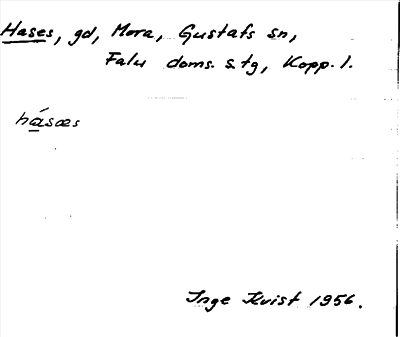 Hases, gd, Mora, Gustafs sn,
Falu doms. stg, Kopp. l.
hásæs
Inge Kvist 1956.